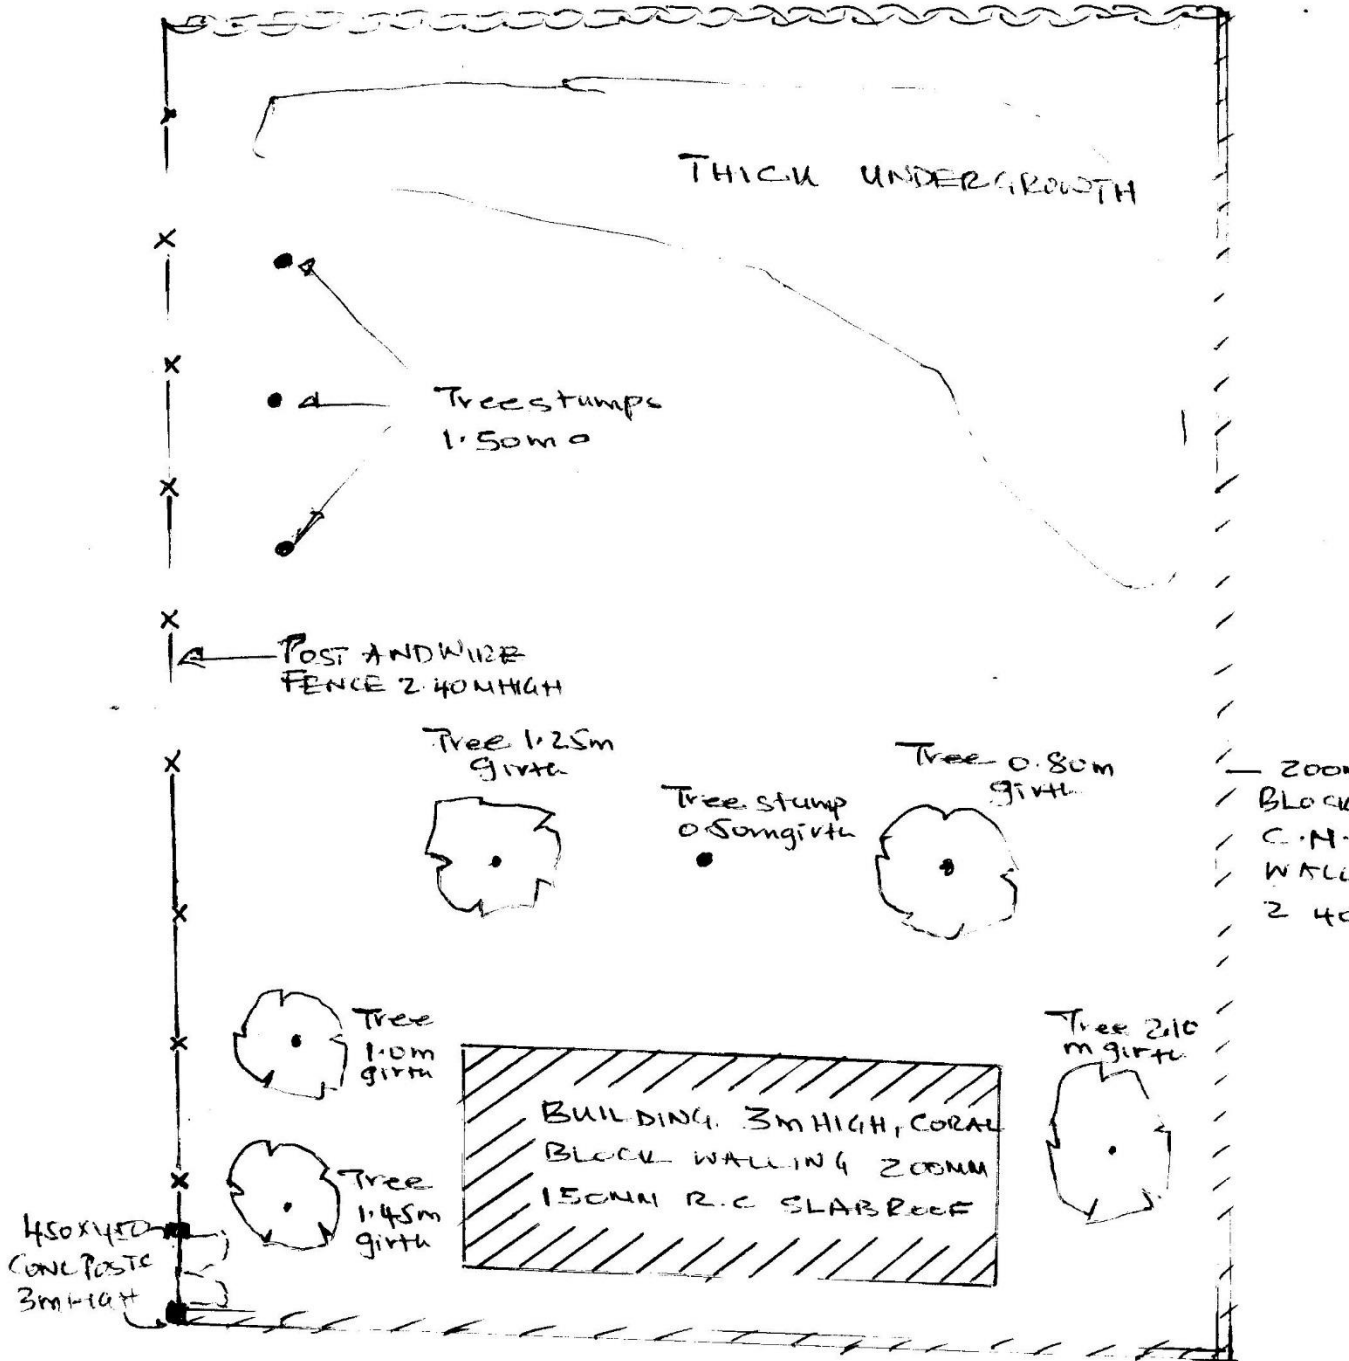 THICK UNDERGROWTH
Treestumps
1.50m o
POST AND WIRE
FENCE 2.40M HIGH
Tree 1.25m
girth
Tree stump
0.50m girth
Tree 0.80m
girth
BLOCK
C.M.
WALL
2 40
Tree
1.0m
girth
Tree 2.10
m girth
BUILDING. 3m HIGH, CORAL
BLOCK WALLING 200MM
150MM R.C SLAB ROOF
Tree
1.45m
girth
450X450
CONC POSTS
3m HIGH